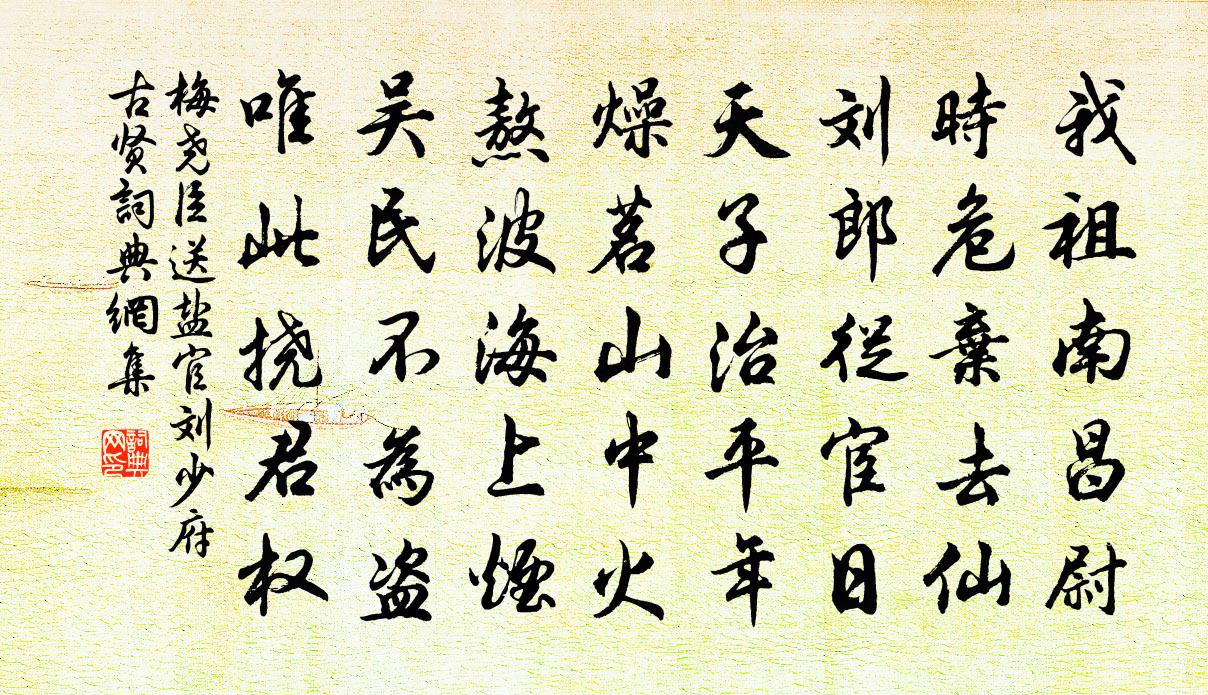 我祖南昌尉
時危棄去仙
刘郎從宦日
天子治平年
燥茗山中火
熬波海上煙
吴民不為盗
唯此挠君权
梅尧臣送盐官刘少府
古贤詞典網集
詞典
网印